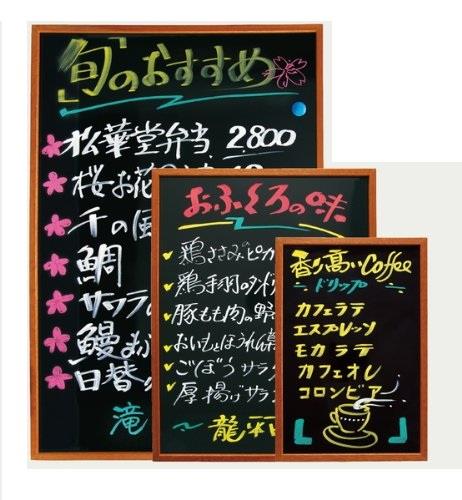 「旬」のおすすめ
松華堂弁当 2,800
桜お花
千の風
鯛
サワラの
鰻まぶ
日替
滝
おふくろの味
鶏ささみのピカ
鶏手羽のタンド
豚もも肉の野
おいもとほうれん草
ごぼうサラ
厚揚げサラ
龍
香り高いCoffee
ドリップ
カフェラテ
エスプレッソ
モカラテ
カフェオレ
コロンビア